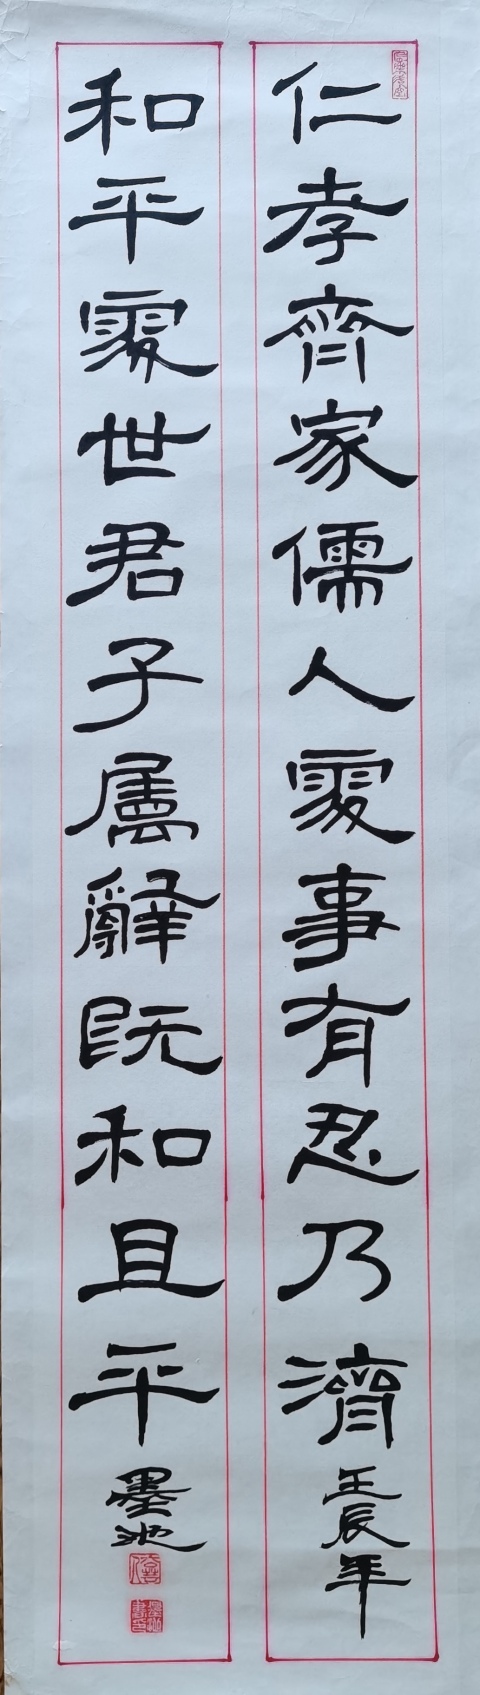 仁孝齊家儒人處事有忍乃濟
壬辰年
和平處世君子屬辭既和且平
墨池